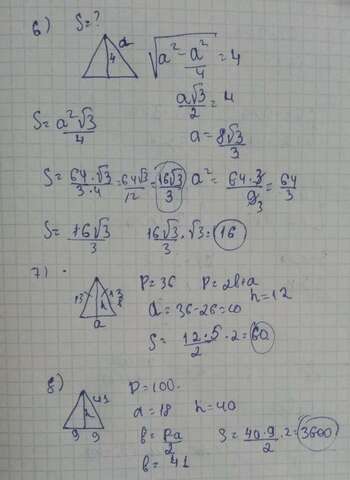 6) S=?
a
4
√(a² - a²/4) = 4
a√3/2 = 4
S = a²√3/4
a = 8√3/3
S = 64·√3/3·4 = 64√3/12 = 16√3/3
a² = 64·3/9₃ = 64/3
S = 16√3/3
16√3/3 · √3 = 16
7)
13 h 13
a
P = 36 P = 2b+a
a = 36-26 = 10
h = 12
S = 12·5/2 · 2 = 60
8)
41
h
9 9
P = 100.
a = 18 h = 40
b = P-a/2
b = 41
S = 40·9/2 · 2 = 3600